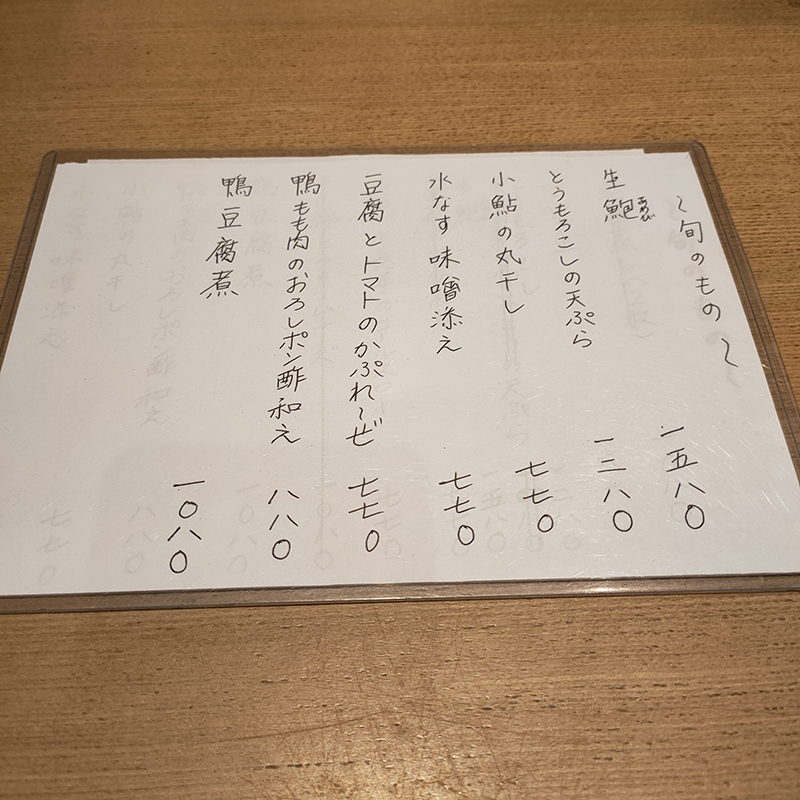 〜旬のもの〜
生鮑 一五八〇
とうもろこしの天ぷら 一二八〇
小鮎の丸干し 七七〇
水なす 味噌添え 七七〇
豆腐とトマトのかぷれ〜ぜ 七七〇
鴨もも肉のおろしポン酢和え 八八〇
鴨豆腐煮 一〇八〇